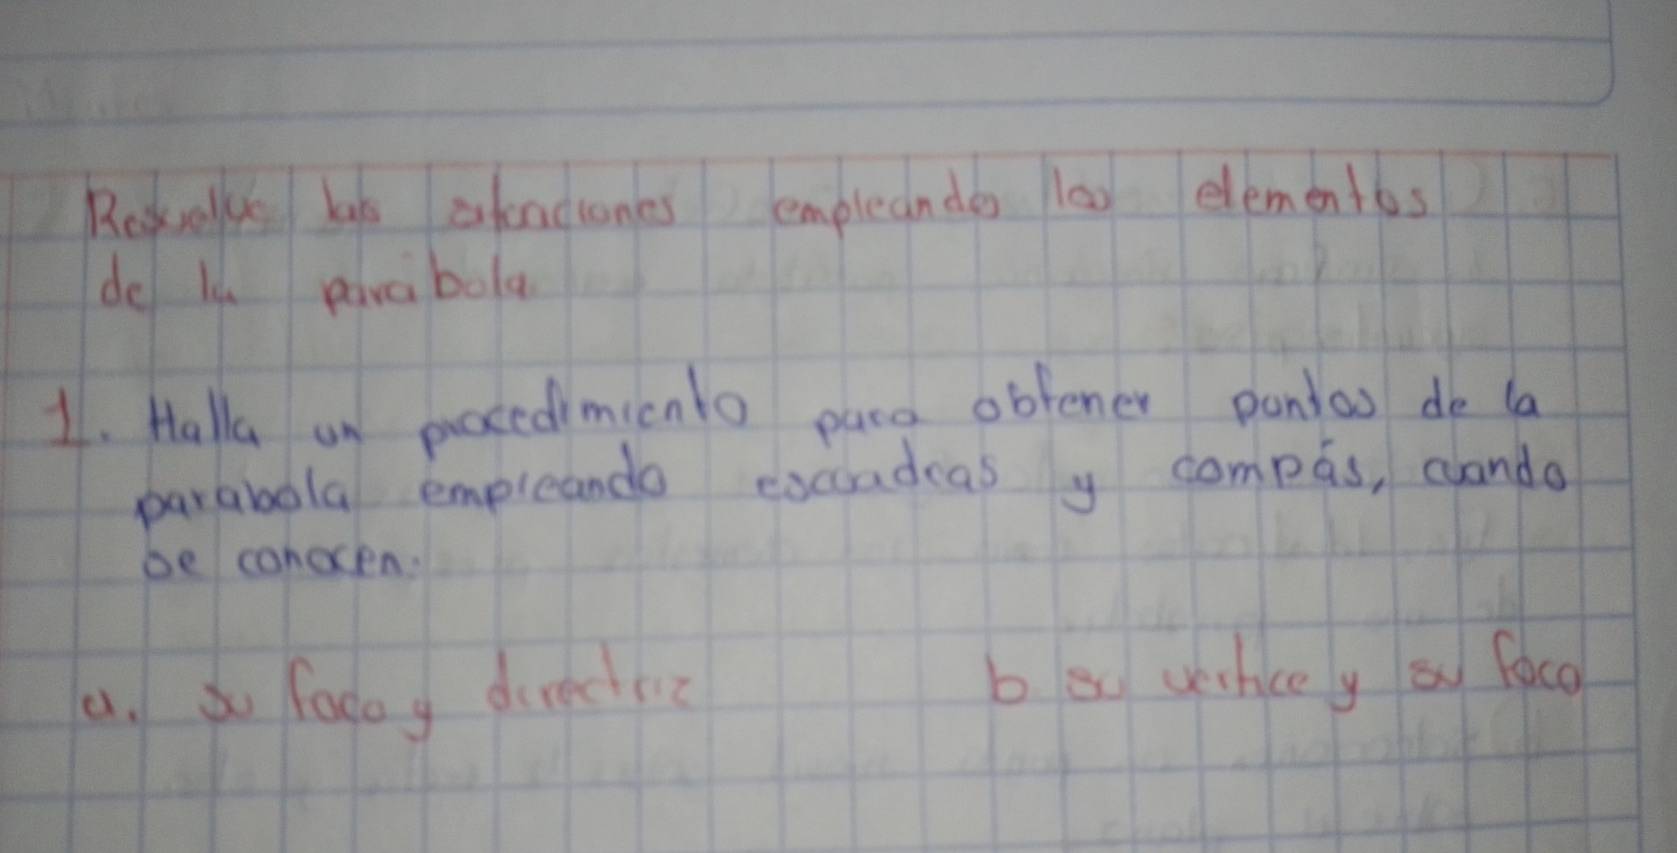 Resuelve las situaciones empleando los elementos
de la parabola
1. Halla un procedimiento para obtener puntos de la
parabola empleando escuadras y compás, cuando
se conocen:
a. su foco y directriz b su vertice y su foco